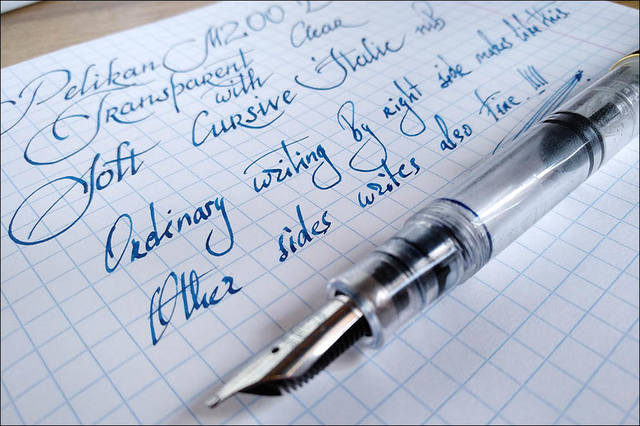 Pelikan M200
Transparent Clear
with
Soft Cursive Italic nib
Ordinary writing by right side makes like this
Other sides writes also fine !!!!